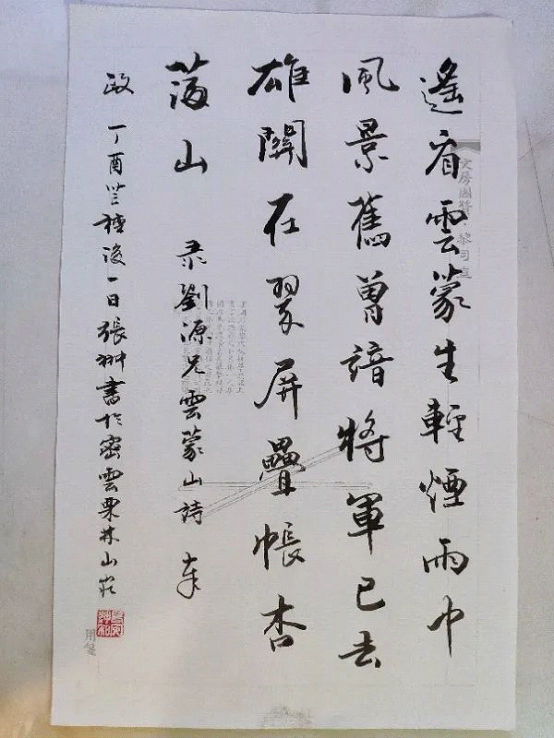 遙看雲蒙生輕煙雨中
風景舊曾諳將軍已去
雄關在翠屏疊帳杏
蕩山 录劉源兄雲蒙山詩奉
政 丁酉芒種後一日張翀書於密雲栗林山莊
文房國寶
用箋